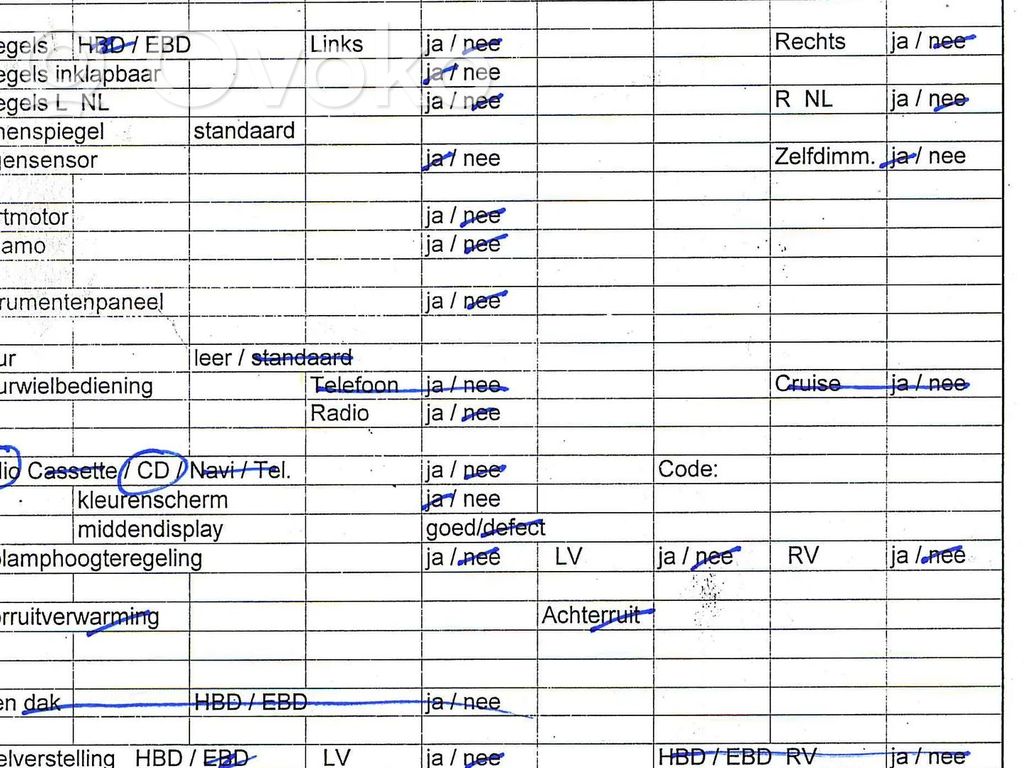 egels HBD / EBD Links ja / nee Rechts ja / nee
egels inklapbaar ja / nee
egels L NL ja / nee R NL ja / nee
nenspiegel standaard
gensensor ja / nee Zelfdimm. ja / nee
rtmotor ja / nee
amo ja / nee
rumentenpaneel ja / nee
ur leer / standaard
urwielbediening Telefoon ja / nee Cruise ja / nee
Radio ja / nee
io Cassette / CD / Navi / Tel. ja / nee Code:
kleurenscherm ja / nee
middendisplay goed/defect
lamphoogteregeling ja / nee LV ja / nee RV ja / nee
rruitverwarming Achterruit
en dak HBD / EBD ja / nee
elverstelling HBD / EBD LV ja / nee HBD / EBD RV ja / nee
Ovoko